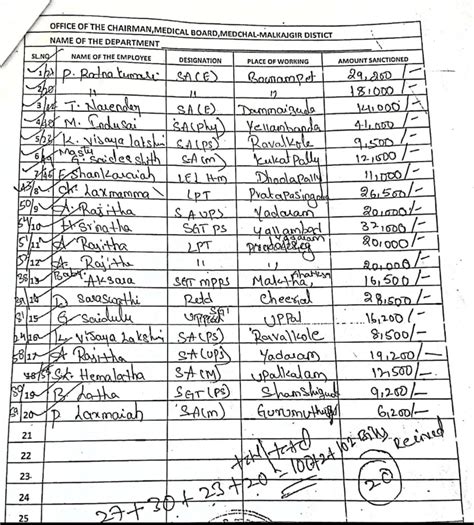 OFFICE OF THE CHAIRMAN,MEDICAL BOARD,MEDCHAL-MALKAJGIR DISTICT
NAME OF THE DEPARTMENT
SL.NO NAME OF THE EMPLOYEE DESIGNATION PLACE OF WORKING AMOUNT SANCTIONED
1 P. Ratna kumari SA(E) 29,200/-
2 " " " 18,000/-
3 T. Narender SA(E) Dammaiguda 14,000/-
4 M. Indusai SA(Phy) Yellambanda 41,000/-
5 K. Vijaya lakshmi SA(PS) Ravalkole 9,500/-
6 SA(m) Kukatpally 12,000/-
7 Shankaraiah 11,000/-
8 Ch. Laxmamma LPT Pratapasingaram 26,500/-
50/9 A. Rajitha SA UPS Yadaram 20,000/-
10 H. Srinatha SGT PS 32,000/-
51/11 A Rajitha LPT 20,000/-
12 A. Rajitha " " 20,000/-
13 Baby Aksara SGT MPPS 16,500/-
14 D Saraswathi Retd Cheerial 28,500/-
15 G Saidulu UPPal 16,200/-
16 L. Vijaya Lakshmi SA(PS) Ravalkole 8,500/-
58/17 A Rajitha SA(UPS) Yadaram 19,200/-
18 Hemalatha SA(M) Upalkalam 12,500/-
19 B Latha SGT(PS) Shamshiguda 9,200/-
20 P Laxmaiah SA(m) 6,200/-
21
22
23
24
25
27+30+23+20=100+2+102 Bills Recived
20